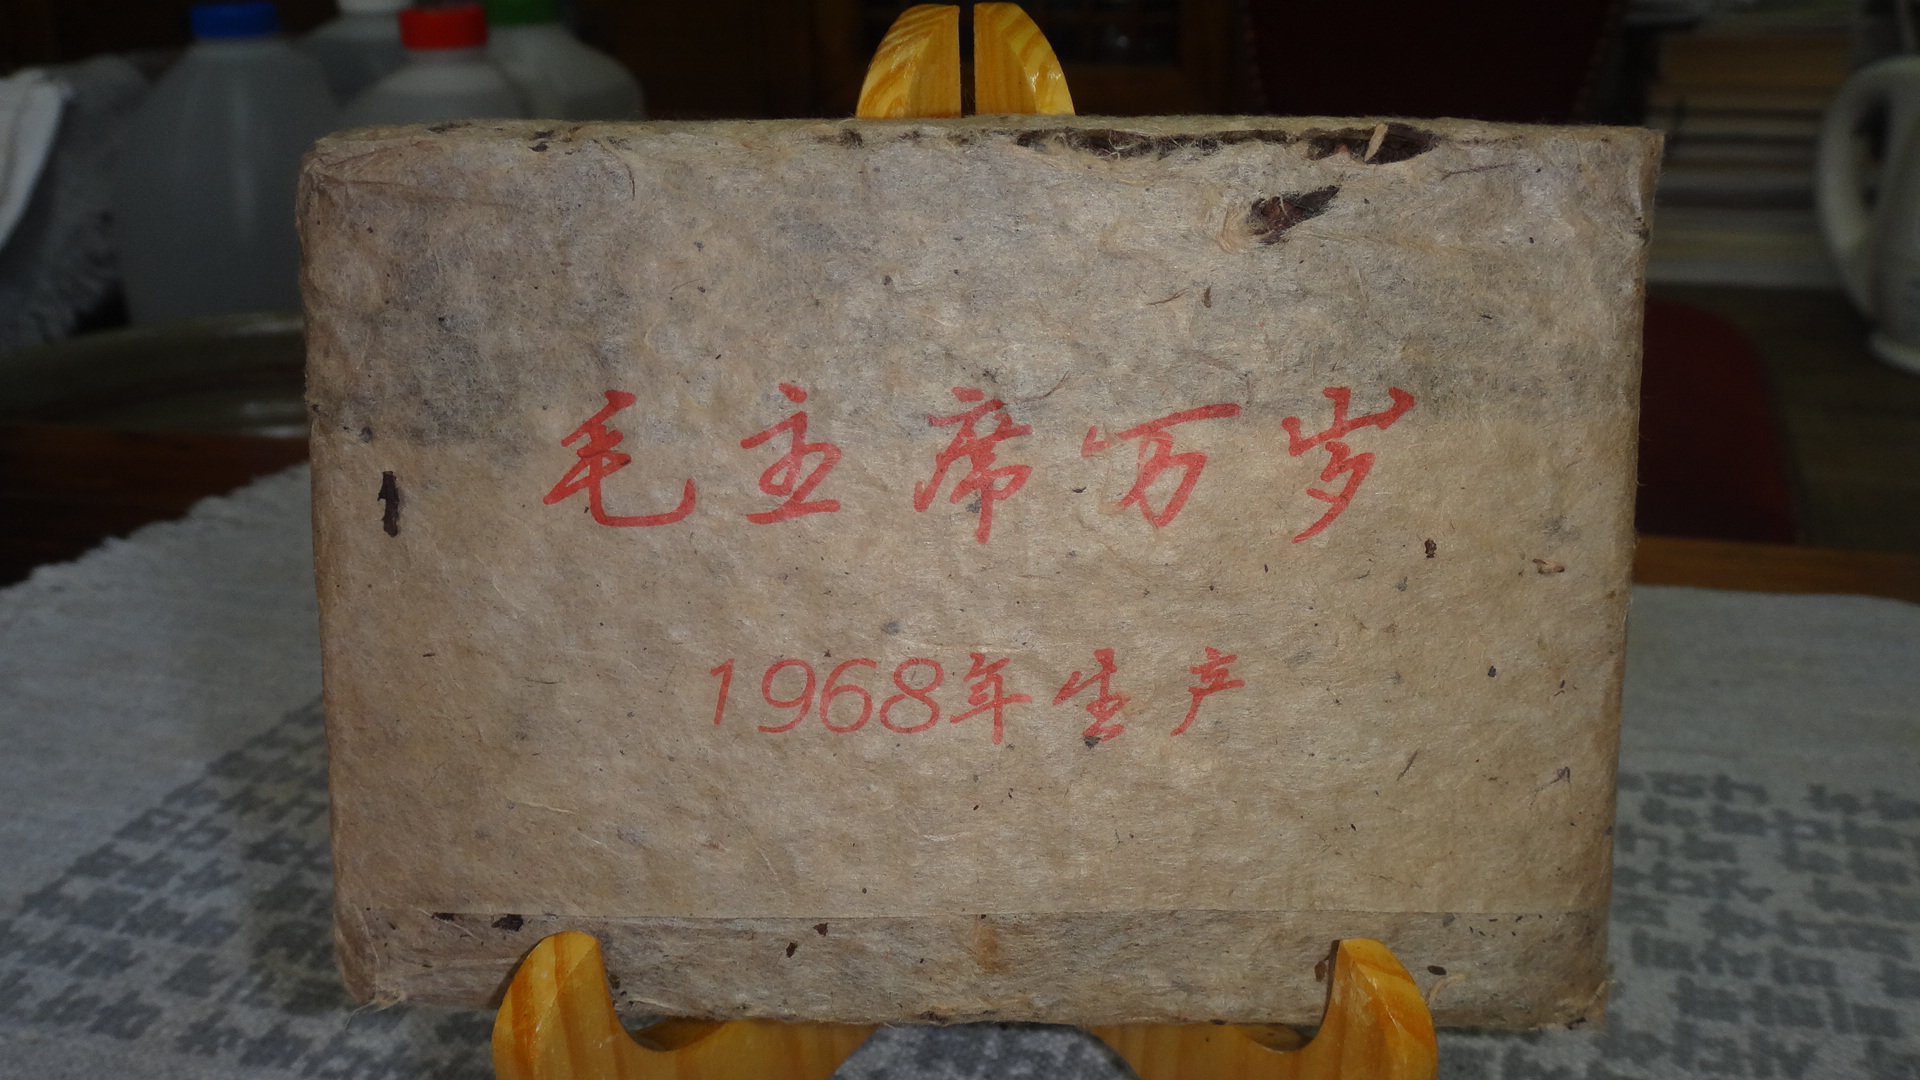 毛主席万岁
1968年生产